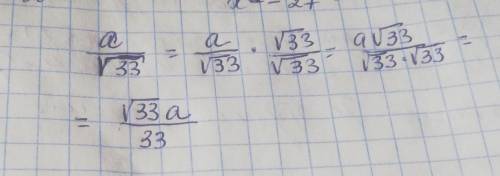 a/√33 = a/√33 · √33/√33 = a√33/√33·√33 =
= √33a/33